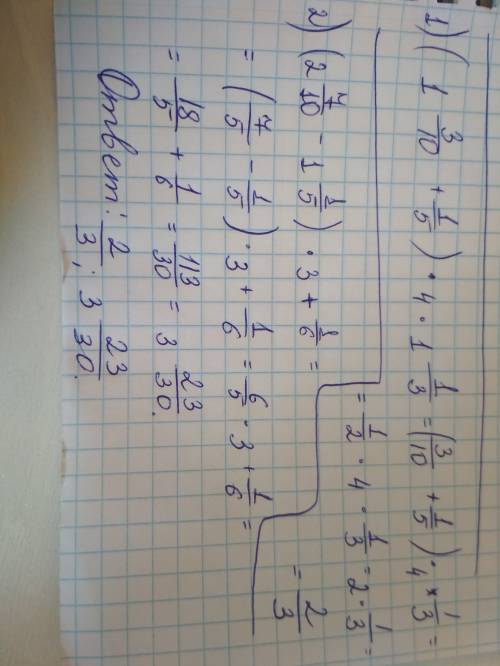 1) ( 1 3/10 + 1/5 ) · 4 · 1 1/3 = ( 3/10 + 1/5 ) · 4 * 1/3 =
= 1/2 · 4 · 1/3 = 2 · 1/3 =
= 2/3
2) ( 2 4/10 - 1 1/5 ) · 3 + 1/6 =
= ( 4/5 - 1/5 ) · 3 + 1/6 = 6/5 · 3 + 1/6 =
= 18/5 + 1/6 = 113/30 = 3 23/30.
Ответ: 2/3 ; 3 23/30.